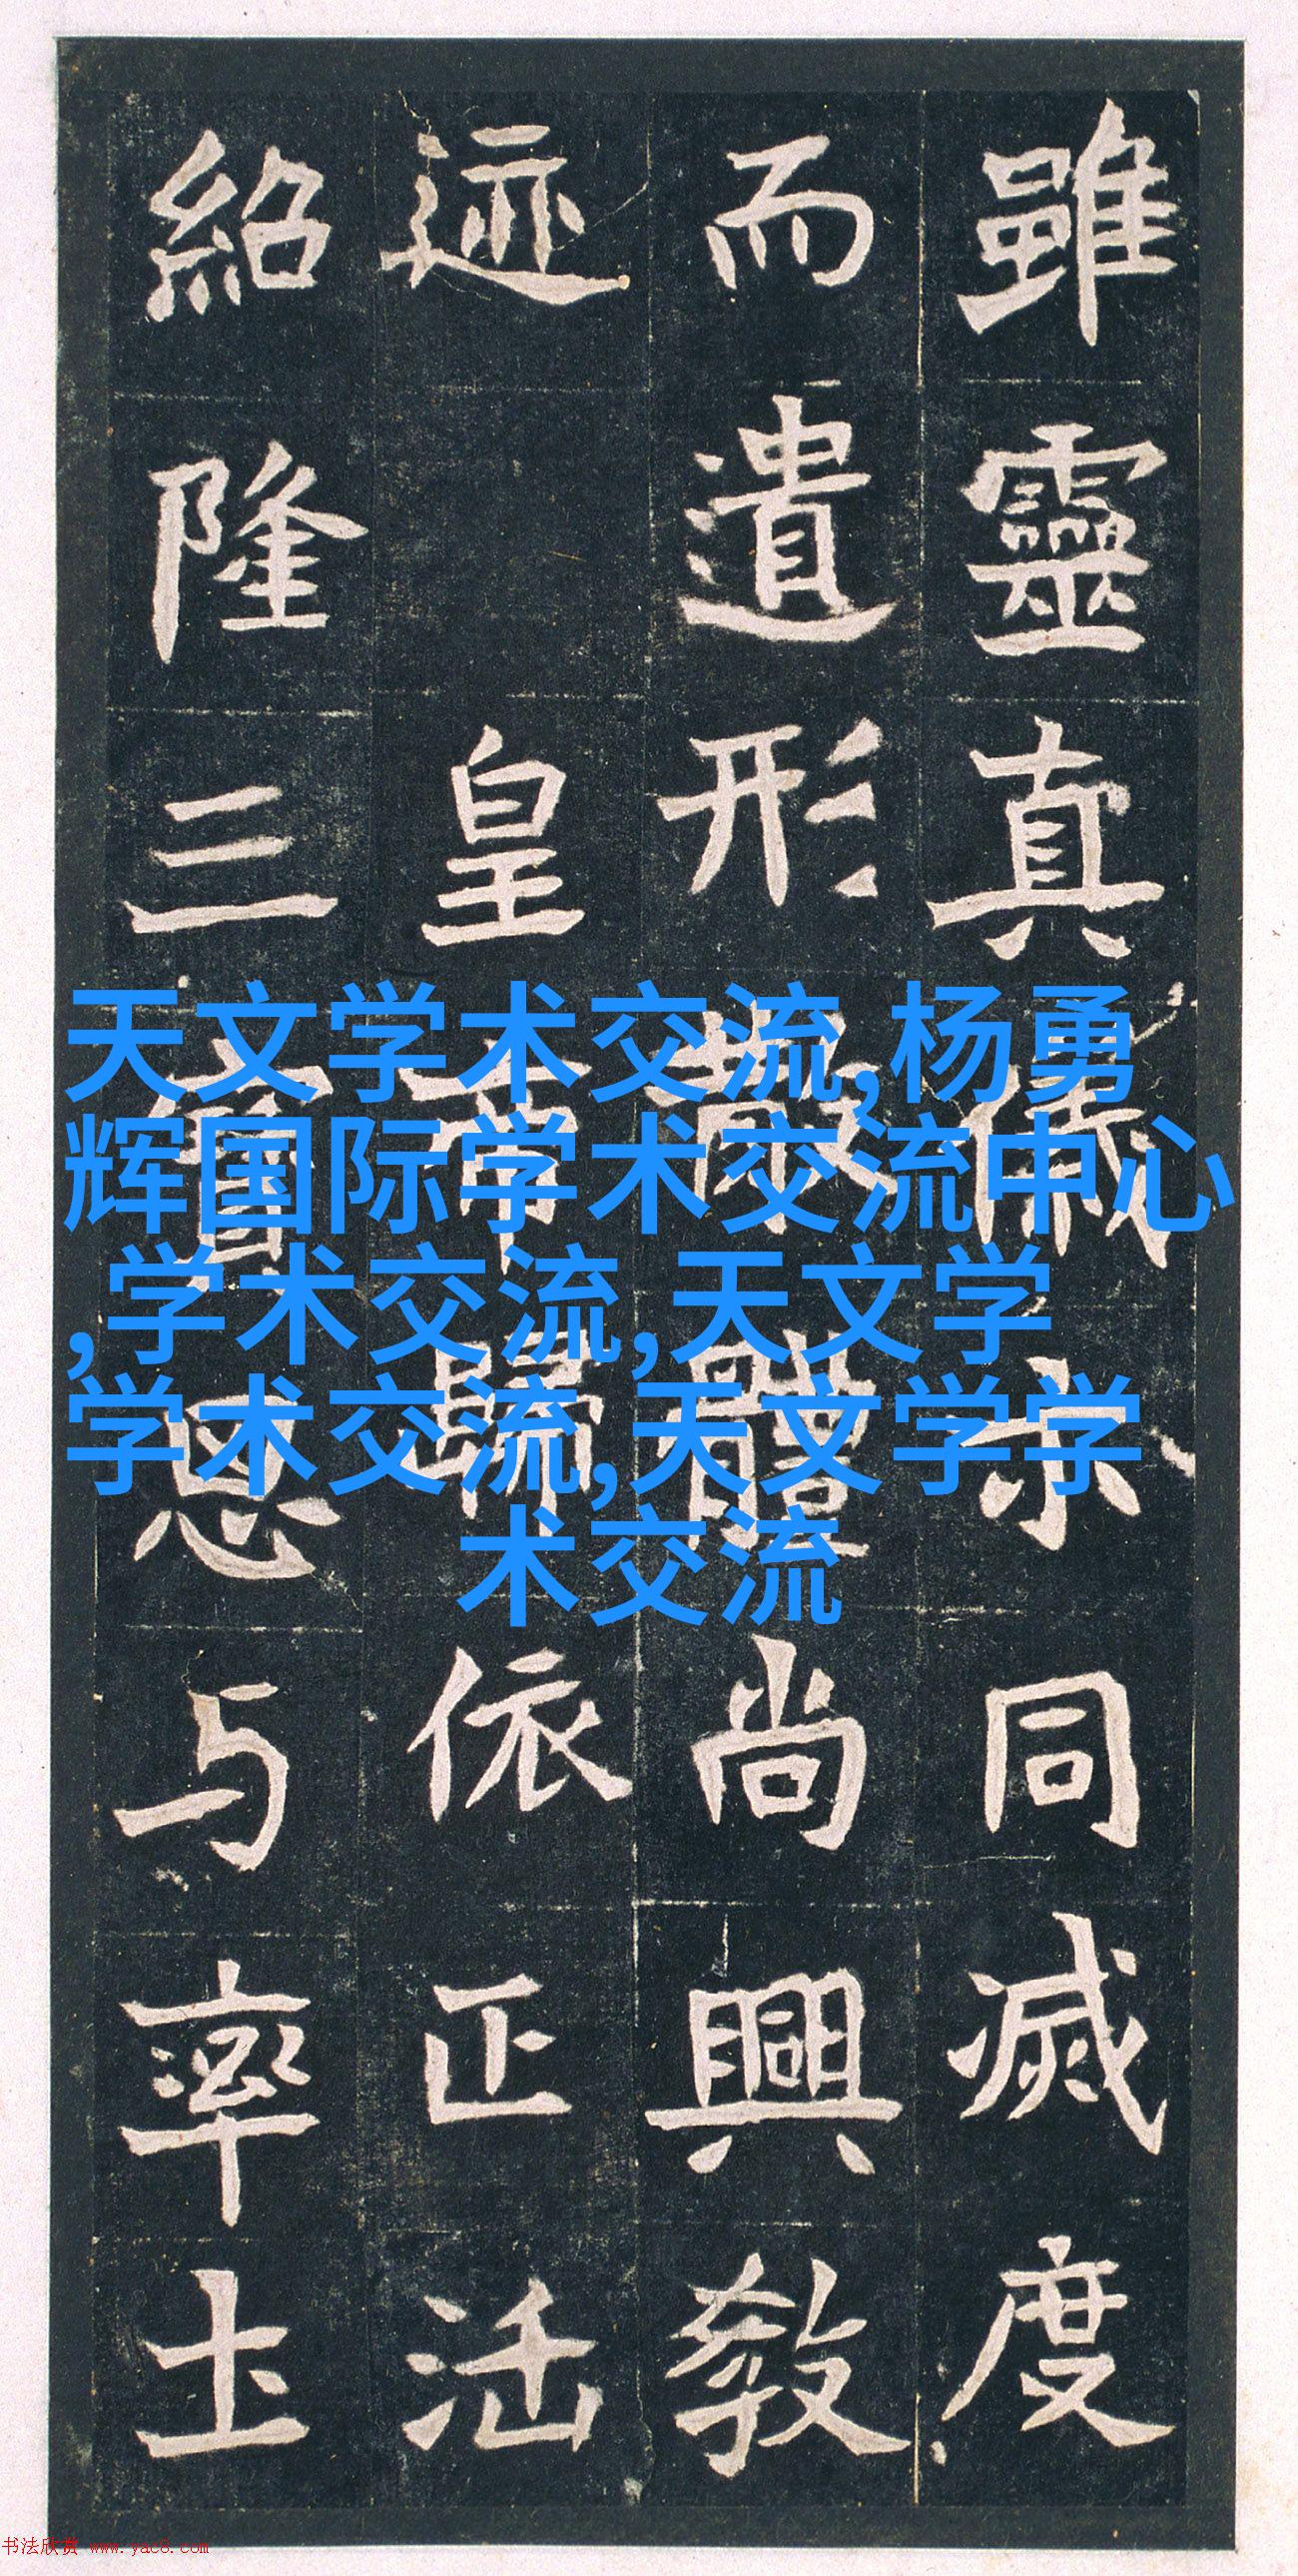 雖靈真儀示同滅度
而遺形散體尚興教
迹 皇帝歸依正法
紹隆三寶思与率土
天文学术交流,杨勇
辉国际学术交流中心
,学术交流,天文学
学术交流,天文学学
术交流
书法欣赏 www.yac8.com